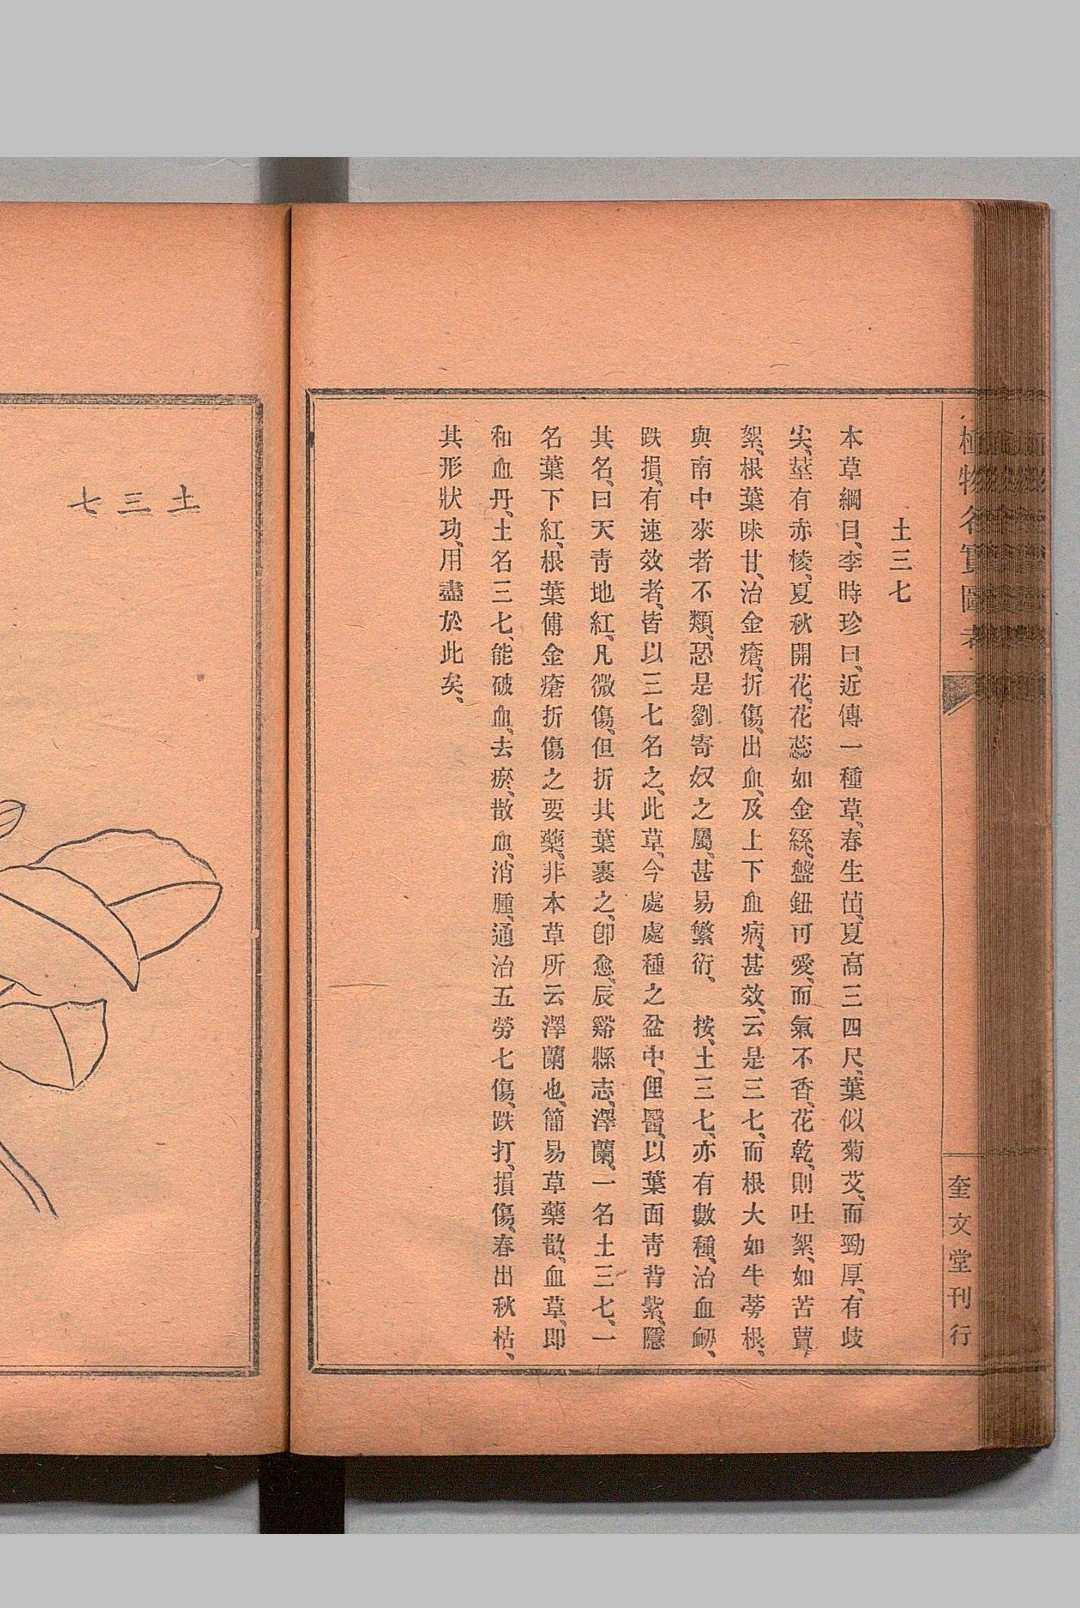 植物名實圖考
奎文堂刊行
土三七
本草綱目、李時珍曰、近傳一種草、春生苗、夏高三四尺、葉似菊艾、而勁厚、有歧
尖、莖有赤棱、夏秋開花、花蕊如金絲、盤鈕可愛、而氣不香、花乾、則吐絮、如苦蕒
絮、根葉味甘、治金瘡、折傷、出血、及上下血病、甚效、云是三七、而根大如牛蒡根、
與南中來者不類、恐是劉寄奴之屬、甚易繁衍、　按、土三七、亦有數種、治血衂、
跌損、有速效者、皆以三七名之、此草、今處處種之盆中、俚醫、以葉面靑背紫、隱
其名、曰天靑地紅、凡微傷、但折其葉裹之、卽愈、辰谿縣志、澤蘭、一名土三七、一
名葉下紅、根葉傅金瘡折傷之要藥、非本草所云澤蘭也、簡易草藥、散血草、卽
和血丹、土名三七、能破血、去瘀、散血、消腫、通治五勞七傷、跌打、損傷、春出秋枯、
其形狀功、用盡於此矣、
土三七